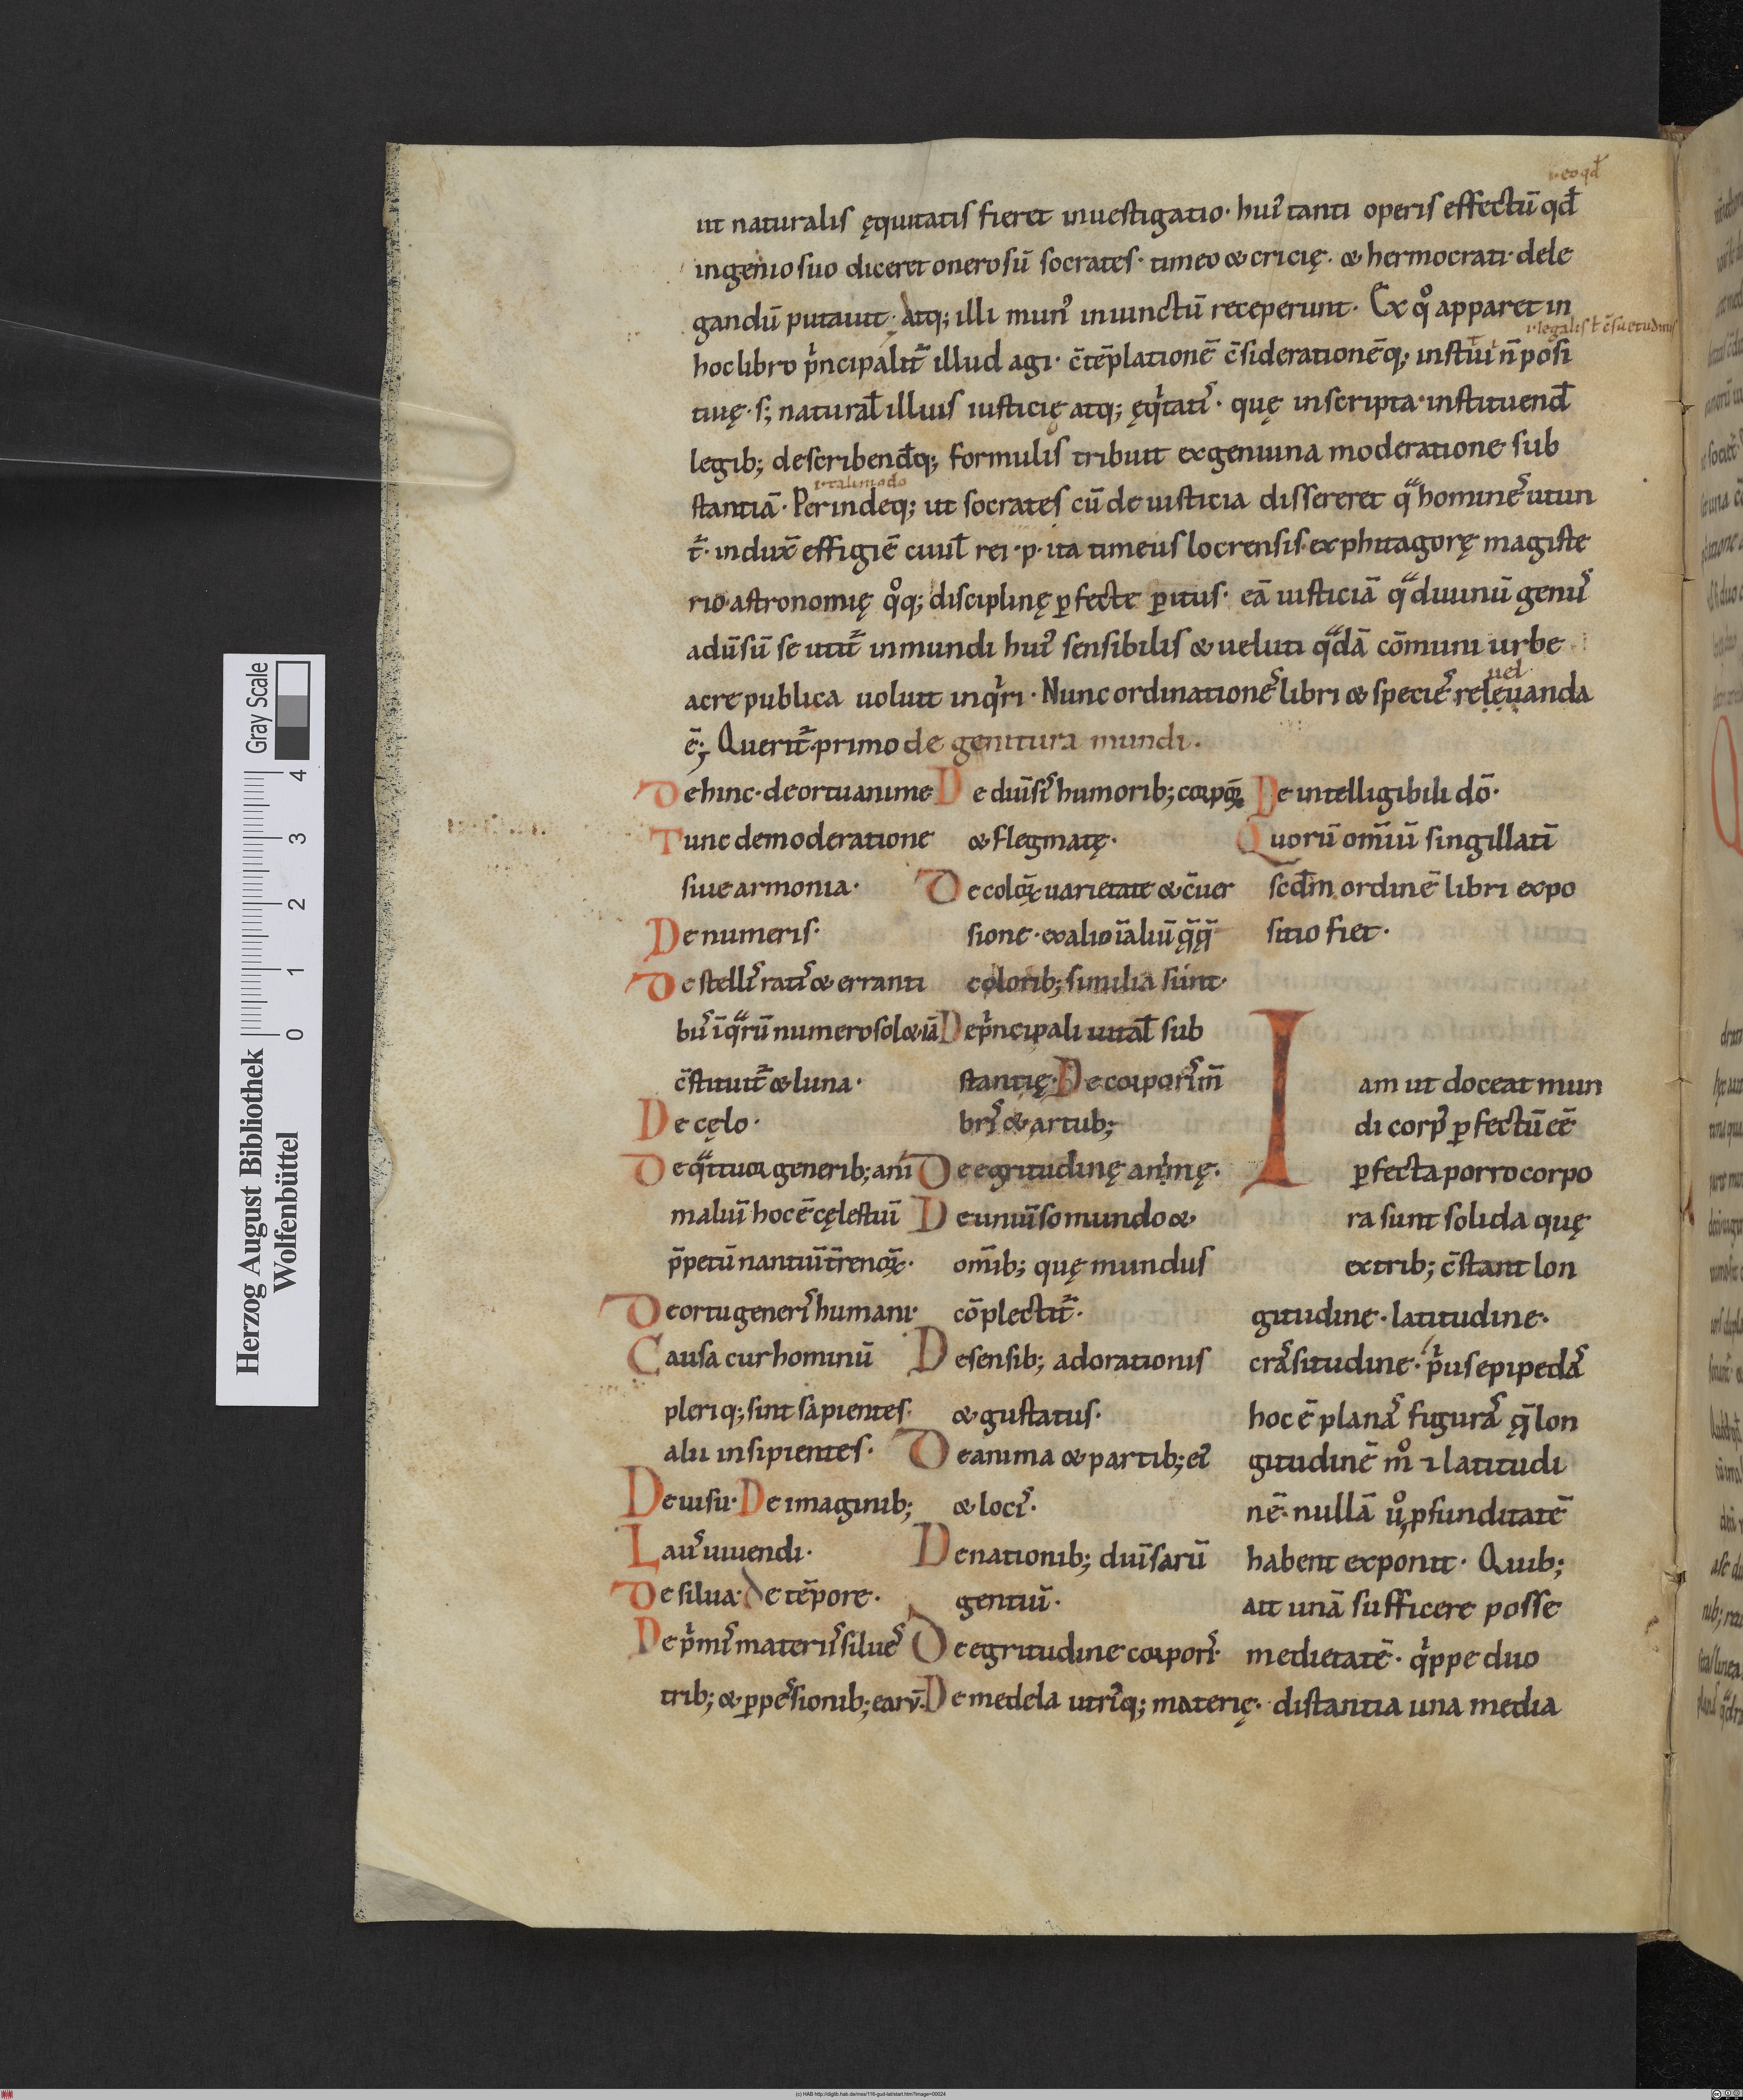 .i. eo qđ
ut naturalis ęquitatis fieret inuestigatio· hui᾽ tanti operis effectū qđ
ingenio suo diceret onerosū socrates· timeo & cricię· & hermocrati· dele
gandū putauit· Atq; illi mun᾽ iniunctū receperunt· Ex qͦ apparet in
.i. legalis ł c̄suetudinis
hoc libro p̍ncipalit̄ illud agi· c̄tēplationē c̄siderationēq; iustiti n̄ posi
tiuę· s; natural̄ illius iusticię atq; ęq̍tati᾽· quę inscripta· instituend̄
legib; describend̄q; formulis tribuit ex genuina moderatione sub
.i. tali modo
stantiā· Perindeq; ut socrates cū de iusticia dissereret qͣ homine᾽ utun
t̄· indux̄ effigiē ciuil̄ rei ·p· ita timeus locrensis ex phitagorę magiste
rio· astronomię qͦq; disciplinę ꝑfecte ꝑitus· eā iusticiā qͣ diuinū genu᾽
aduīsū se utit̄ in mundi hui᾽ sensibilis & ueluti qͣdā cōmuni urbe
uel
ac re publica uoluit inq̍ri· Nunc ordinatione᾽ libri & specie᾽ releuanda
ē; Querit̄ primo de genitura mundi·
Dehinc· de ortu anime
Tunc de moderatione
siue armonia·
De numeris·
De stelli᾽ rati᾽ & erranti
bu᾽ ī qͣrū numero sol & iā
c̄stituit̄ & luna·
De cęlo·
De qͣttuor generib; ani
maliū hoc ē cęlestiū
p̄petū nantiū t̄renoꝝ·
De ortu generi᾽ humani·
Causa cur hominū
pleriq; sint sapientes·
alii insipientes·
De uisu· De imaginib;
Lau᾽ uiuendi·
De silua· De tēpore·
De p̍mi᾽ materii᾽ silue᾽
trib; & ꝑpe᾽sionib; earū·
De diuīsi᾽ humorib; corpoꝝ
& flegmatę·
De coloꝝ uarietate & c̄uer
sione· ex alio ī aliū q̄q̄
colorib; similia sunt·
De p̍ncipali uital̄ sub
stantię· De corpori᾽ m̄
bri᾽ & artub;
De egritudinę animę·
De uniūso mundo &
om̄ib; quę mundus
cōplectit̄·
De sensib; adorationis
& gustatus·
De anima & partib; ei᾽
& loci᾽·
De nationib; diuīsarū
gentiū·
De egritudine corpori᾽·
De medela utri᾽q; materię·
De intelligibili dō·
Quorū om̄iū singillatī
scđm ordinē libri expo
sitio fiet·
Iam ut doceat mun
di corp᾽ ꝑfectū eē
ꝑfecta porro corpo
ra sunt solida quę
ex trib; c̄stant lon
gitudine· latitudine·
cra᾽situdine· p̍us epipeda᾽
hoc ē plana᾽ figura᾽ q̄ lon
gitudinē mͦ ⁊ latitudi
nē· nullā uͦ ꝓfunditatē
habent exponit· Quib;
ait unā sufficere posse
medietatē· q̍ppe duo
distantia una media
Herzog August Bibliothek
Wolfenbüttel
0 1 2 3 4
Gray Scale
(c) HAB http://diglib.hab.de/mss/116-gud-lat/start.htm?image=00024